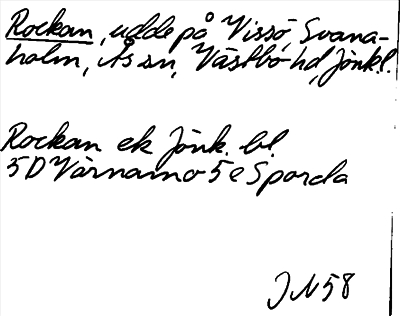 Rockan, udde på Vissö, Svana-
holm, Ås sn, Västbo hd, Jönk.l.
Rockan ek Jönk. bl.
5D Värnamo 5e Sporda
JN58